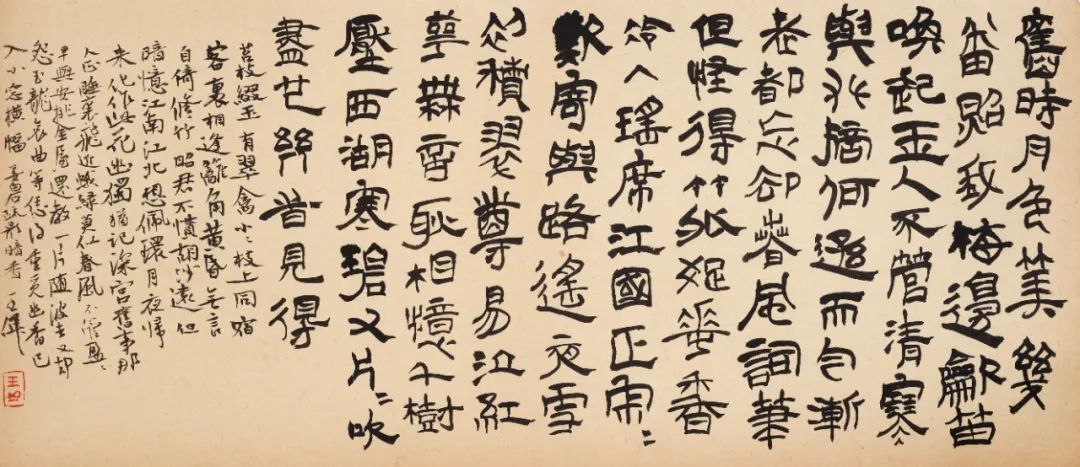 舊時月色算幾
番照我梅邊龡笛
喚起玉人不管清寒
與攀摘何遜而今漸
老都忘卻春風詞筆
但怪得竹外疏華香
冷入瑤席江國正寂〻
歎寄與路遙夜雪
初積翠尊易泣紅
萼無言耿相憶千樹
壓西湖寒碧又片〻吹
盡也幾時見得
苔枝綴玉有翠禽小〻枝上同宿
客裏相逢籬角黃昏無言
自倚修竹昭君不慣胡沙遠但
暗憶江南江北想佩環月夜歸
來化作此花幽獨猶記深宮舊事那
人正睡裏飛近蛾綠莫似春風不管盈〻
早與安排金屋還教一片隨波去又卻
怨玉龍哀曲等恁時重覓幽香已
入小窗橫幅 姜白石疏影暗香 王